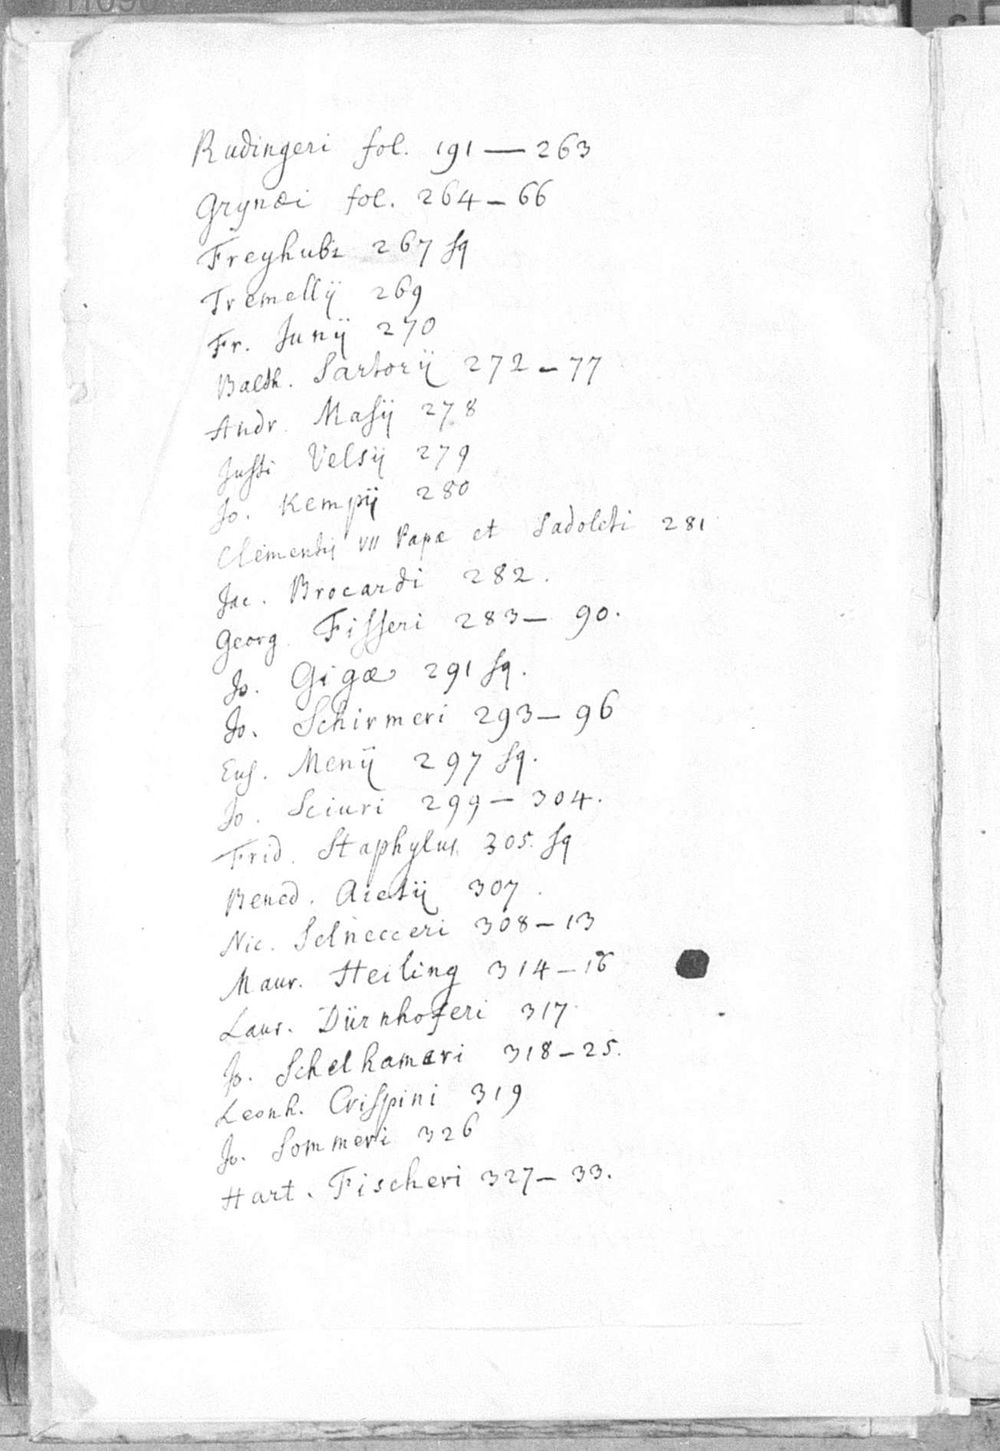 Rudingeri fol. 191 — 263
Grynæi fol. 264 – 66
Freyhubz 267 sq
Tremellij 269
Fr. Junij 270
Balth. Sartorij 272 – 77
Andr. Masij 278
Justi Velsij 279
Jo. Kempij 280
Clementis VII Papæ et Sadoleti 281
Jac. Brocardi 282.
Georg. Fisseri 283 – 90.
Jo. Gigæ 291 sq.
Jo. Schirmeri 293 – 96
Eus. Menij 297 sq.
Jo. Sciuri 299 – 304.
Frid. Staphylus 305. sq
Bened. Aretij 307.
Nic. Selnecceri 308 – 13
Maur. Heiling 314 – 16
Laur. Dürnhoferi 317
Jo. Schelhameri 318 – 25.
Leonh. Crispini 319
Jo. Sommeri 326
Hart. Fischeri 327 – 33.